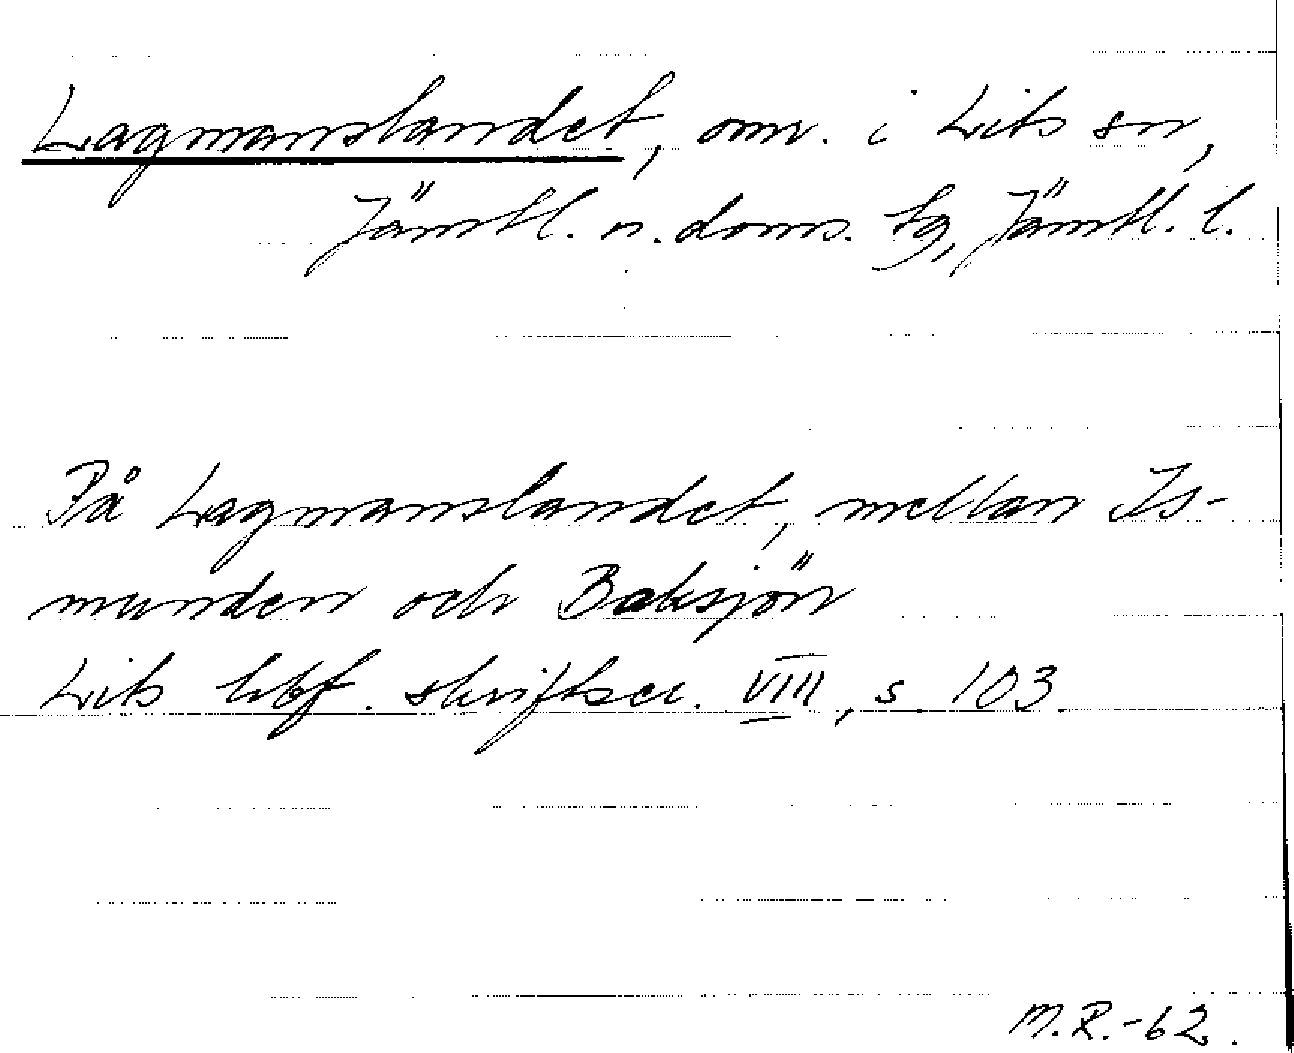 Lagmanslandet, omr. i Lits sn,
Jämtl. n. doms. tg, Jämtl. l.
På Lagmanslandet, mellan Is-
munden och Baksjön
Lits hbf. skriftser. VIII, s 103
M.R.-62.